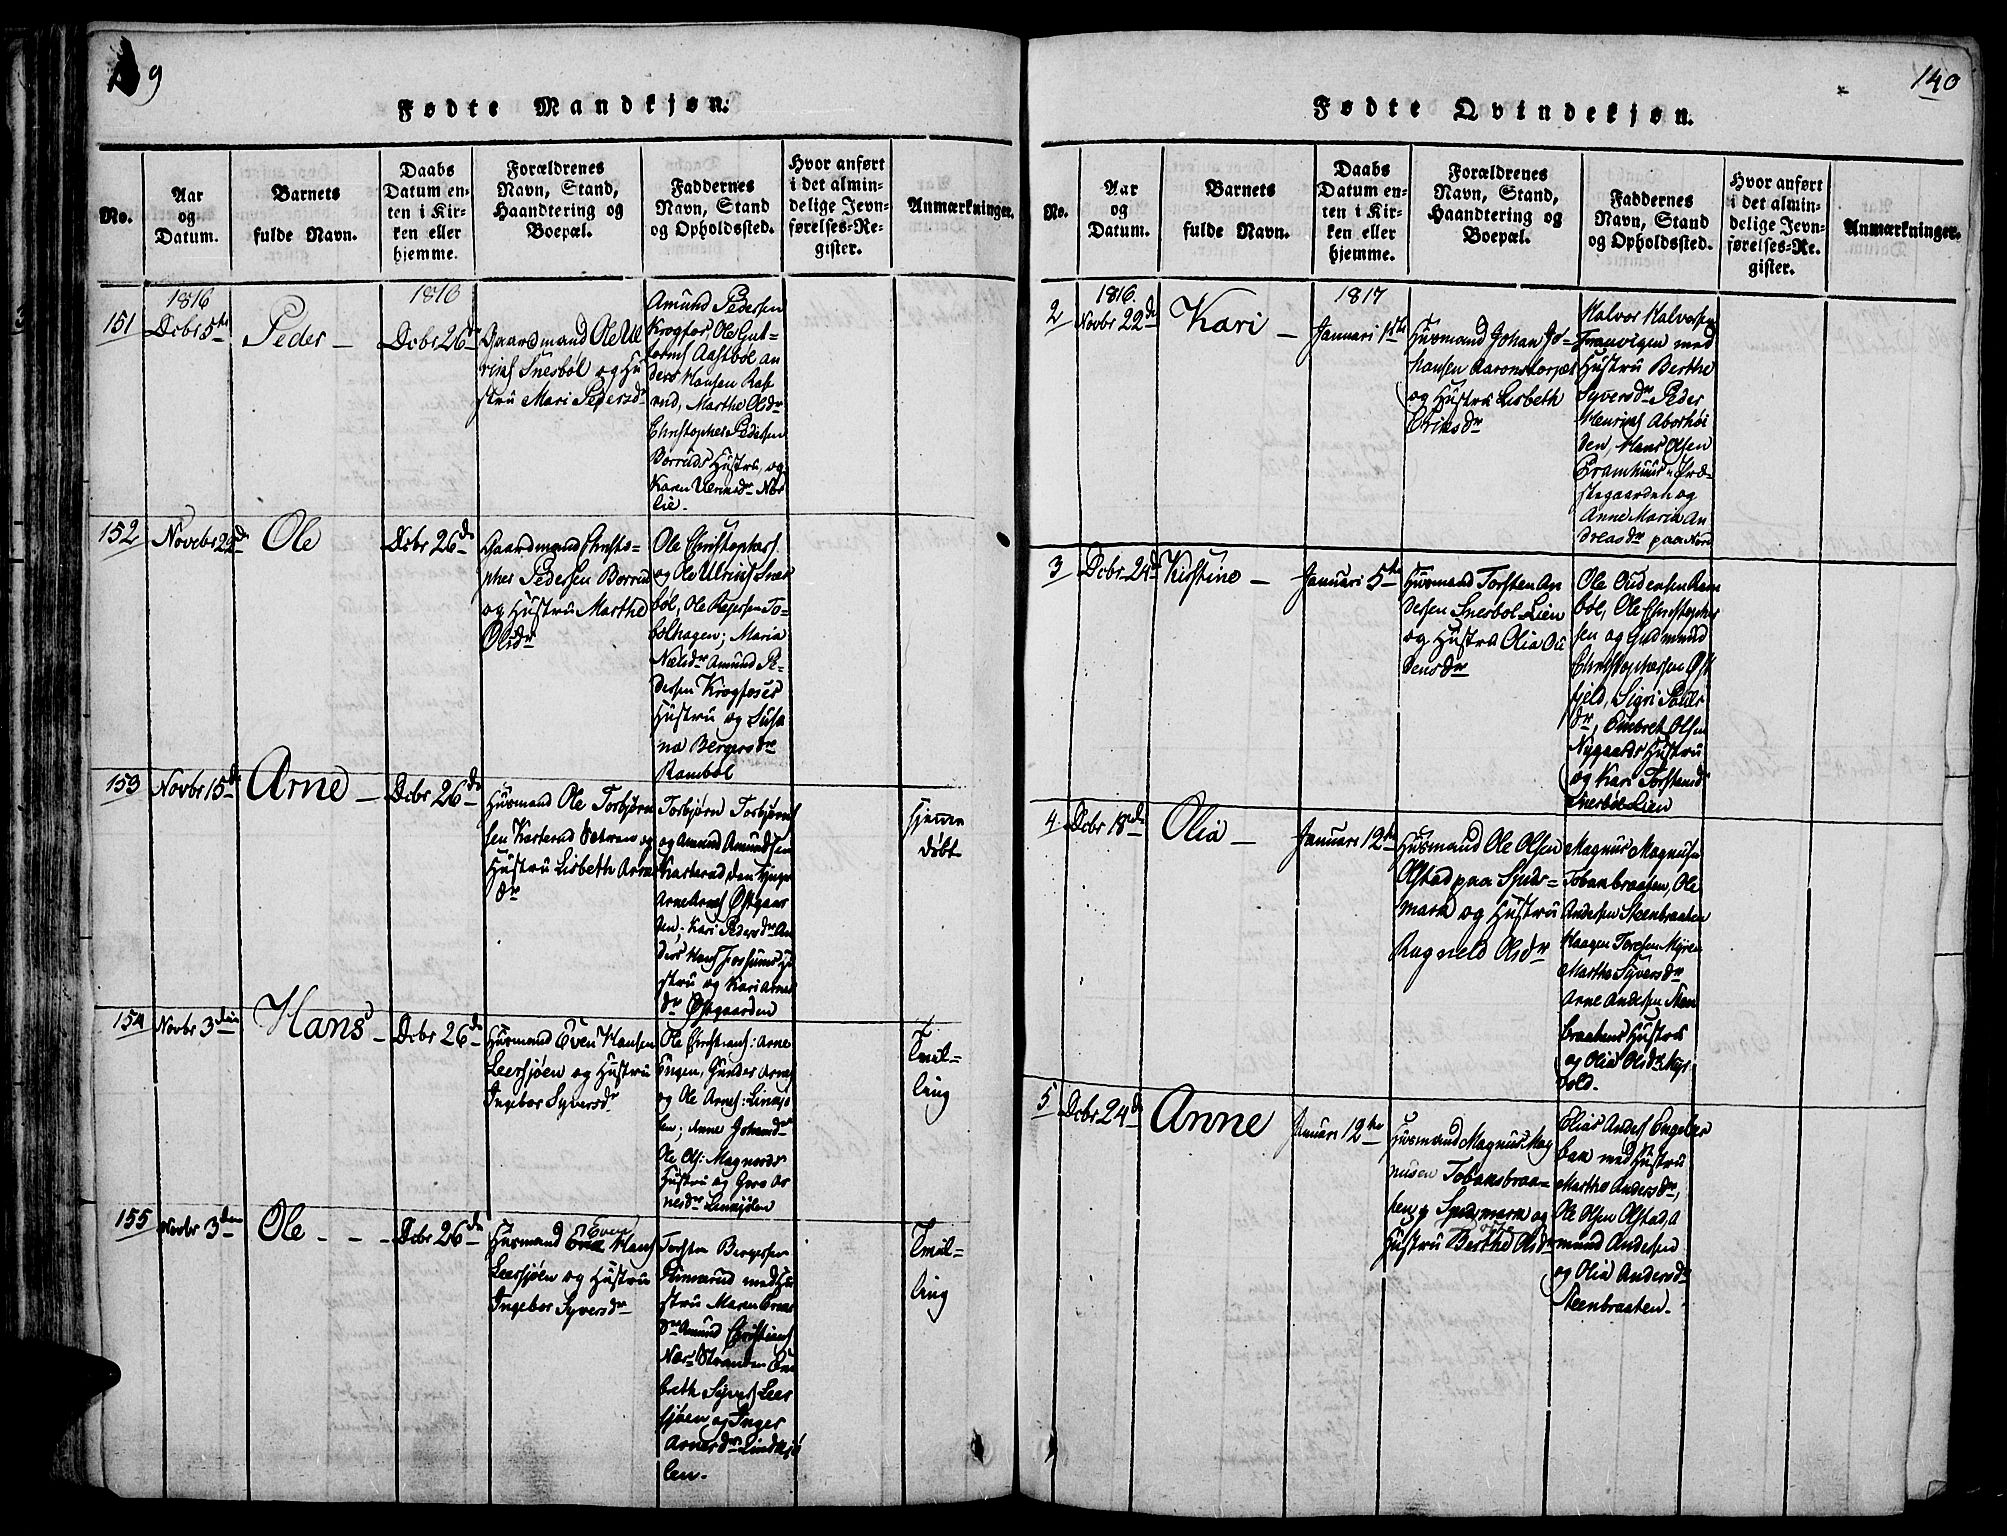 139
Fødte Mandkjøn.
No.
Aar
og
Datum.
Barnets
fulde Navn.
Daabs
Datum en-
ten i Kir-
ken eller
hjemme.
Forældrenes
Navn, Stand,
Haandtering og
Boepæl.
Faddernes
Navn, Stand
og Opholdssted.
Hvor anført
i det almin-
delige Jevn-
førelses-Re-
gister.
Anmærkninger.
151
1816
Dcbr 5te
Peder -
1816
Dcbr 26de
Gaardmand Ole Ul
richs Snesbøl og Hu
stru Mari Pedersdr
Amund Pedersen
Krogfos, Ole Gut-
torms Aasbøl an
ders Hansen Raf
, Marthe Olsdr
Christopher Pedersen
Borruds Hustru, og
Karen Ulrichsdr Nor
lie.
152
Novebr 29de
Ole
Dcbr 26de
Gaardmand Christo-
pher Pedersen Borrud
og Hustru Marthe
Olsdr
Ole Christophers
og Ole Ulrichs Snes
bøl, Ole Pedersen To-
bølhagen; Maria
Nælsdr Amund Pe-
dersen Krogfoses
Hustru og Susa
na Bergersdr
Rambøl
153
Novbr 15de
Arne -
Dcbr 26de
Husmand Ole Torbjørn
sen Kasterud Sætren og
Hustru Lisbeth Arnes
dr
Torbjørn Torbjørns
og Amund Amundsen
Kasterud, den yngre
Arne Arnes Østgaar
den; Kari Pedersdr An
ders Hans Fossums Hu
stru og Kari Arnes
dr Østgaarden
hjemme
døbt
154
Novbr 3die
Hans -
Dcbr 26de
Husmand Even Hansen
Leersjøen og Hustru
Ingebor Syversdr
Ole Christians: Arne
Engen, Gunder Arnes
og Ole Arnes: Linnsjø
len; Anne Johansdr
Ole Ols: Magnords
Hustru og Goro Ar
nesdr Linnsjølen
Tvil-
ling
155
Novbr 3den
Ole - - -
Dcbr 26de
Husmand Even Hans
Leersjøen og Hustru
Ingebor Syversdr
Torsten Bergersen
Finnerud med Hu
stru Maren Evens
dr Amund Christians
Nær-Stranden Em
breth Syvers Leer
sjøen og Inger
Arnesdr Lindsjø
len.
Tvil-
ling
140
Fødte Qvindekjøn.
No.
Aar
og
Datum.
Barnets
fulde Navn.
Daabs
Datum en-
ten i Kir-
ken eller
hjemme.
Forældrenes
Navn, Stand,
Haandtering og
Boepæl.
Faddernes
Navn, Stand
og Opholdssted.
Hvor anført
i det almin-
delige Jevn-
førelses-Re-
gister.
Anmærkninger.
2
1816.
Novbr 22de
Kari -
1817
Januari 1ste
Husmand Johan Jo-
hansen Aaronstorpet
og Hustru Lisbeth
Eriksdr
Halvor Halvorsen
Tranvigen med
Hustru Berthe
Syversdr Peder
Henrichs Aborhöi
den, Hans Olsen
Kramhuus - Præ-
stegaarden og
Anne Maria An
dreasdr paa Nord
3
Dcbr 24de
Kirstine -
Januari 5te
Husmand Torsten An
dersen Snesbøl-Lien
og Hustru Olia Au
densdr
Ole Oudensen Ram
bøl, Ole Christopher
sen og Gudmund
Christophersen Øst
fjeld, Sigri Peders
dr, Embret Olsen
Nygaards Hustru
og Kari Torstensdr
Snesbøl Lien
4.
Dcbr 18de
Olia -
Januari 12te
Husmand Ole Olsen
Olstad paa Spids-
mark og Hustru
Ragneld Olsdr
Magnus Magnusen
Tobakbraaten, Ole
Andersen Steenbraaten
Haagen Toresen Myren
Marthe Syversdr
Arne Andersen Steen
braatens Hustru
og Olia Olsdr Myr
vold.
5
Dcbr 24de
Anne
Januari 12te
Husmand Magnus Mag
nusen Tobaksbraa-
ten p Spidsmark og
Hustru Berthe Olsdr
Elias Anders Engeber
bak med Hustru
Marthe Andersdr,
Ole Olsen Olstad, A
mund Andersen
og Olia Andersdr
Steenbraaten.